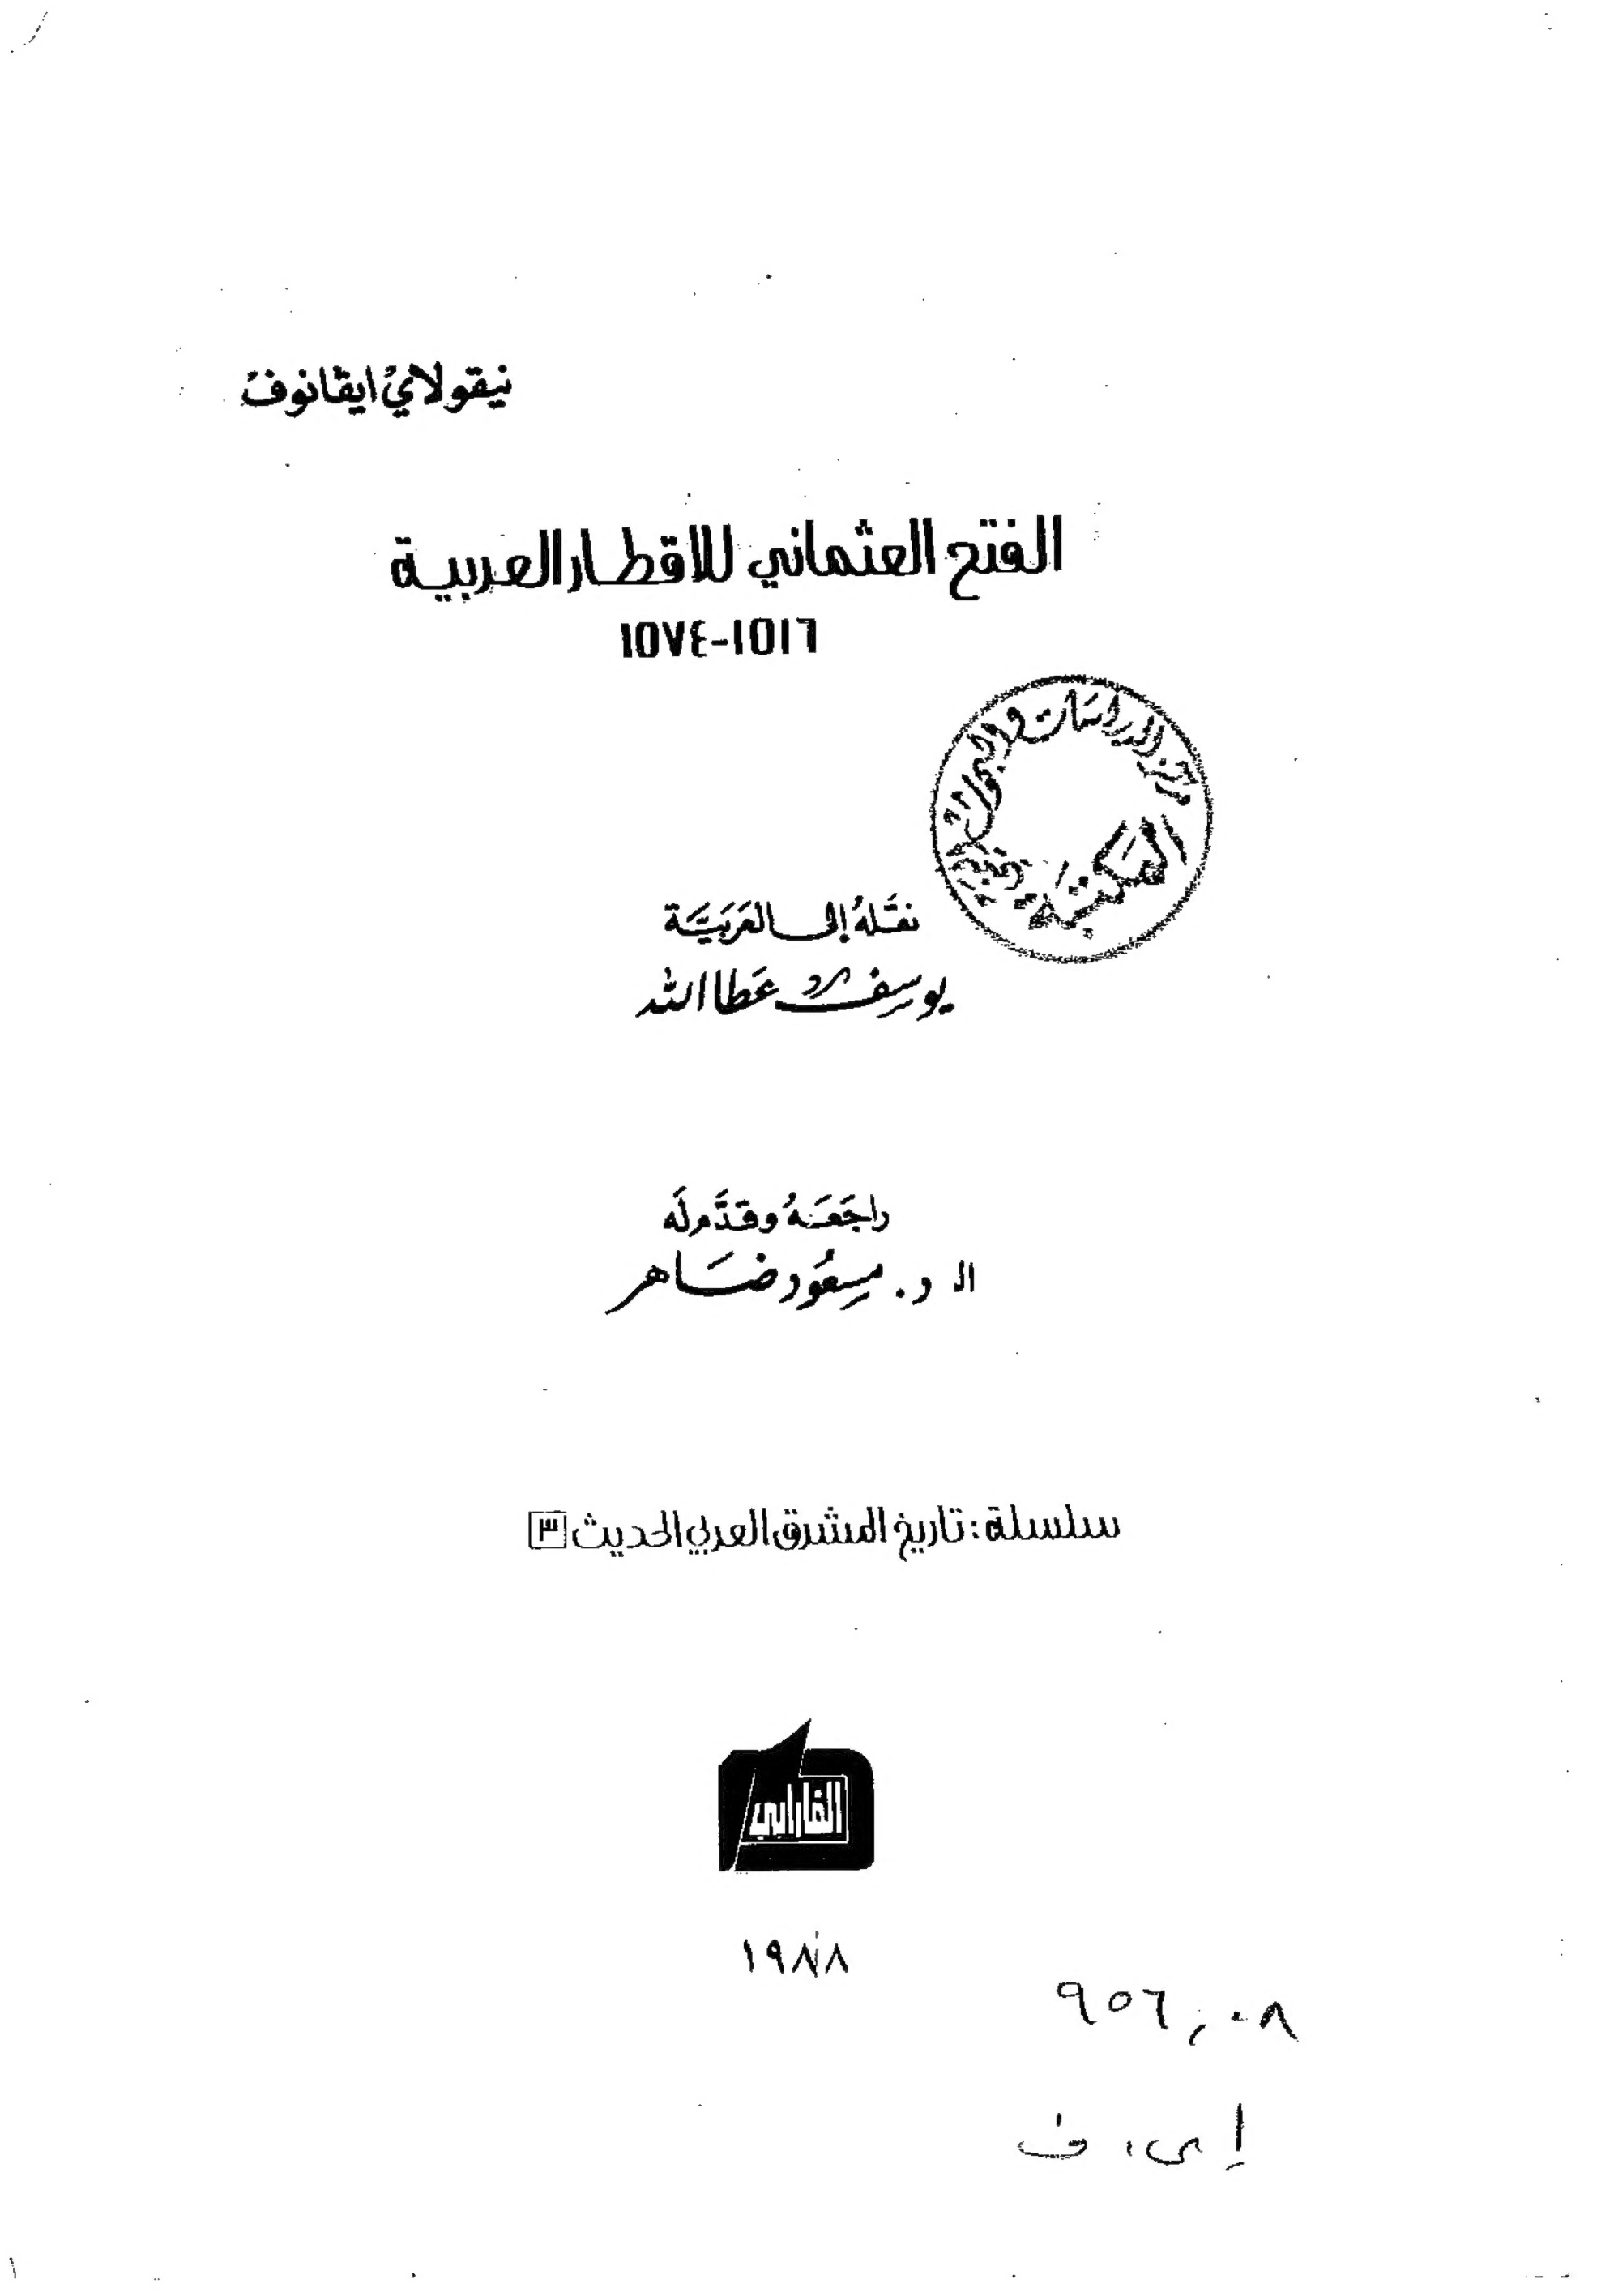 نيقولاي ايڤانوف
الفتح العثماني للاقطار العربية
١٥١٦-١٥٧٤
مركز الدراسات والبحوث
العسكرية
نقله إلى العربيّة
يوسف عطاالله
راجعه وقدّم له
الـ د. مسعود ضاهر
سلسلة: تاريخ المشرق العربي الحديث ٣
الفارابي
١٩٨٨
٩٥٦,٠٨
إي، ف